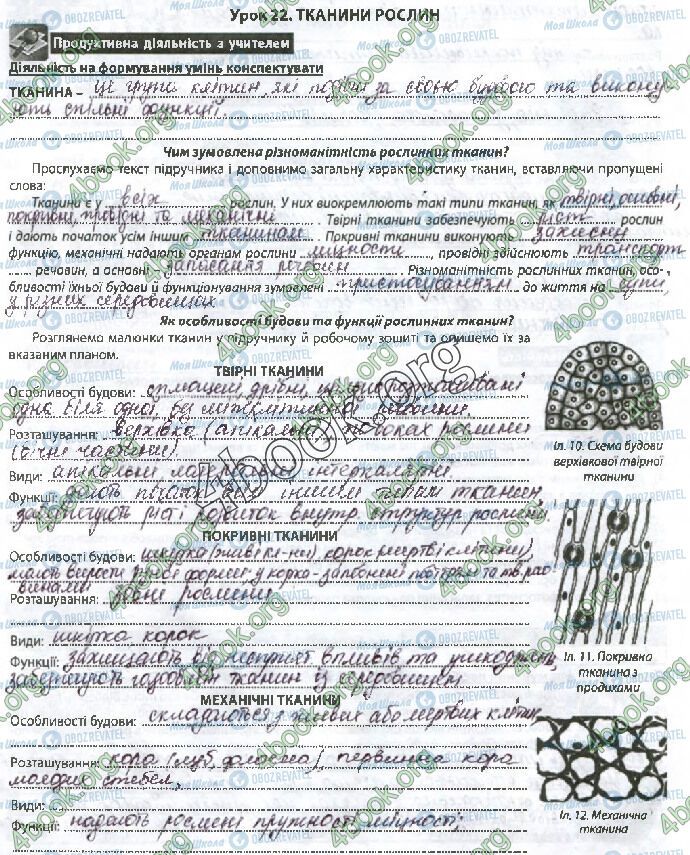 Урок 22. ТКАНИНИ РОСЛИН
Продуктивна діяльність з учителем
Діяльність на формування умінь конспектувати
ТКАНИНА – це група клітин, які подібні за своєю будовою та викону
ють спільні функції.
Чим зумовлена різноманітність рослинних тканин?
Прослухаємо текст підручника і доповнимо загальну характеристику тканин, вставляючи пропущені
слова:
Тканини є у всіх рослин. У них виокремлюють такі типи тканин, як твірні, основні,
покривні, провідні та механічні. Твірні тканини забезпечують ріст рослин
і дають початок усім іншим тканинам. Покривні тканини виконують захисну
функцію, механічні надають органам рослини міцності, провідні здійснюють транспорт
речовин, а основні запасання речовин. Різноманітність рослинних тканин, осо-
бливості їхньої будови й функціонування зумовлені пристосуванням до життя на суші,
у різних середовищах
Як особливості будови та функції рослинних тканин?
Розглянемо малюнки тканин у підручнику й робочому зошиті та опишемо їх за
вказаним планом.
ТВІРНІ ТКАНИНИ
Особливості будови: сплющені дрібні, щільно розташовані
одна біля одної, без міжклітинної речовини.
Розташування: верхівка (апікальна) боках рослини
(бічне частини)
Види: апікальні латеральні інтеркалярні.
Функції: дають початок всім іншим типам тканин,
забезпечують ріст і розвиток внутр. структур рослини
Іл. 10. Схема будови
верхівкової твірної
тканини
ПОКРИВНІ ТКАНИНИ
Особливості будови: шкірка (живі кл-ни), корок (мертві клітини)
мають вирости різної форми, у корка - запобнені повітрям та
Розташування: зовні рослини
Види: шкірка корок
Функції: захищають від негативних впливів та ушкоджень,
забезпечують газообмін тканин із середовищем
Іл. 11. Покривна
тканина з
продихами
МЕХАНІЧНІ ТКАНИНИ
Особливості будови: складаються з живих або мертвих клітин
Розташування: кора (луб, флоема), первинна кора
молодих стебел,
Види:
Функції: надають рослині пружності, міцності.
Іл. 12. Механічна
тканина
4book.org
Моя Школа
OBOZREVATEL